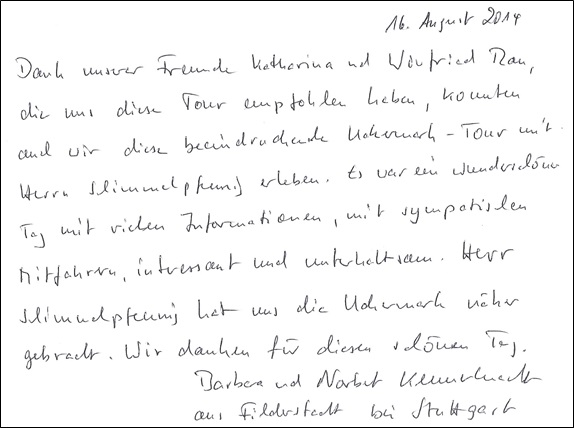 16. August 2014
Dank unserer Freunde Katharina und Winfried Rau,
die uns diese Tour empfohlen haben, konnten
auch wir diese beeindruckende Uckermark-Tour mit
Herrn Schimmelpfennig erleben. Es war ein wunderschöner
Tag mit vielen Informationen, mit sympatischen
Mitfahrern, interessant und unterhaltsam. Herr
Schimmelpfennig hat uns die Uckermark näher
gebracht. Wir danken für diesen schönen Tag.
Barbara und Norbert
aus Filderstadt bei Stuttgart